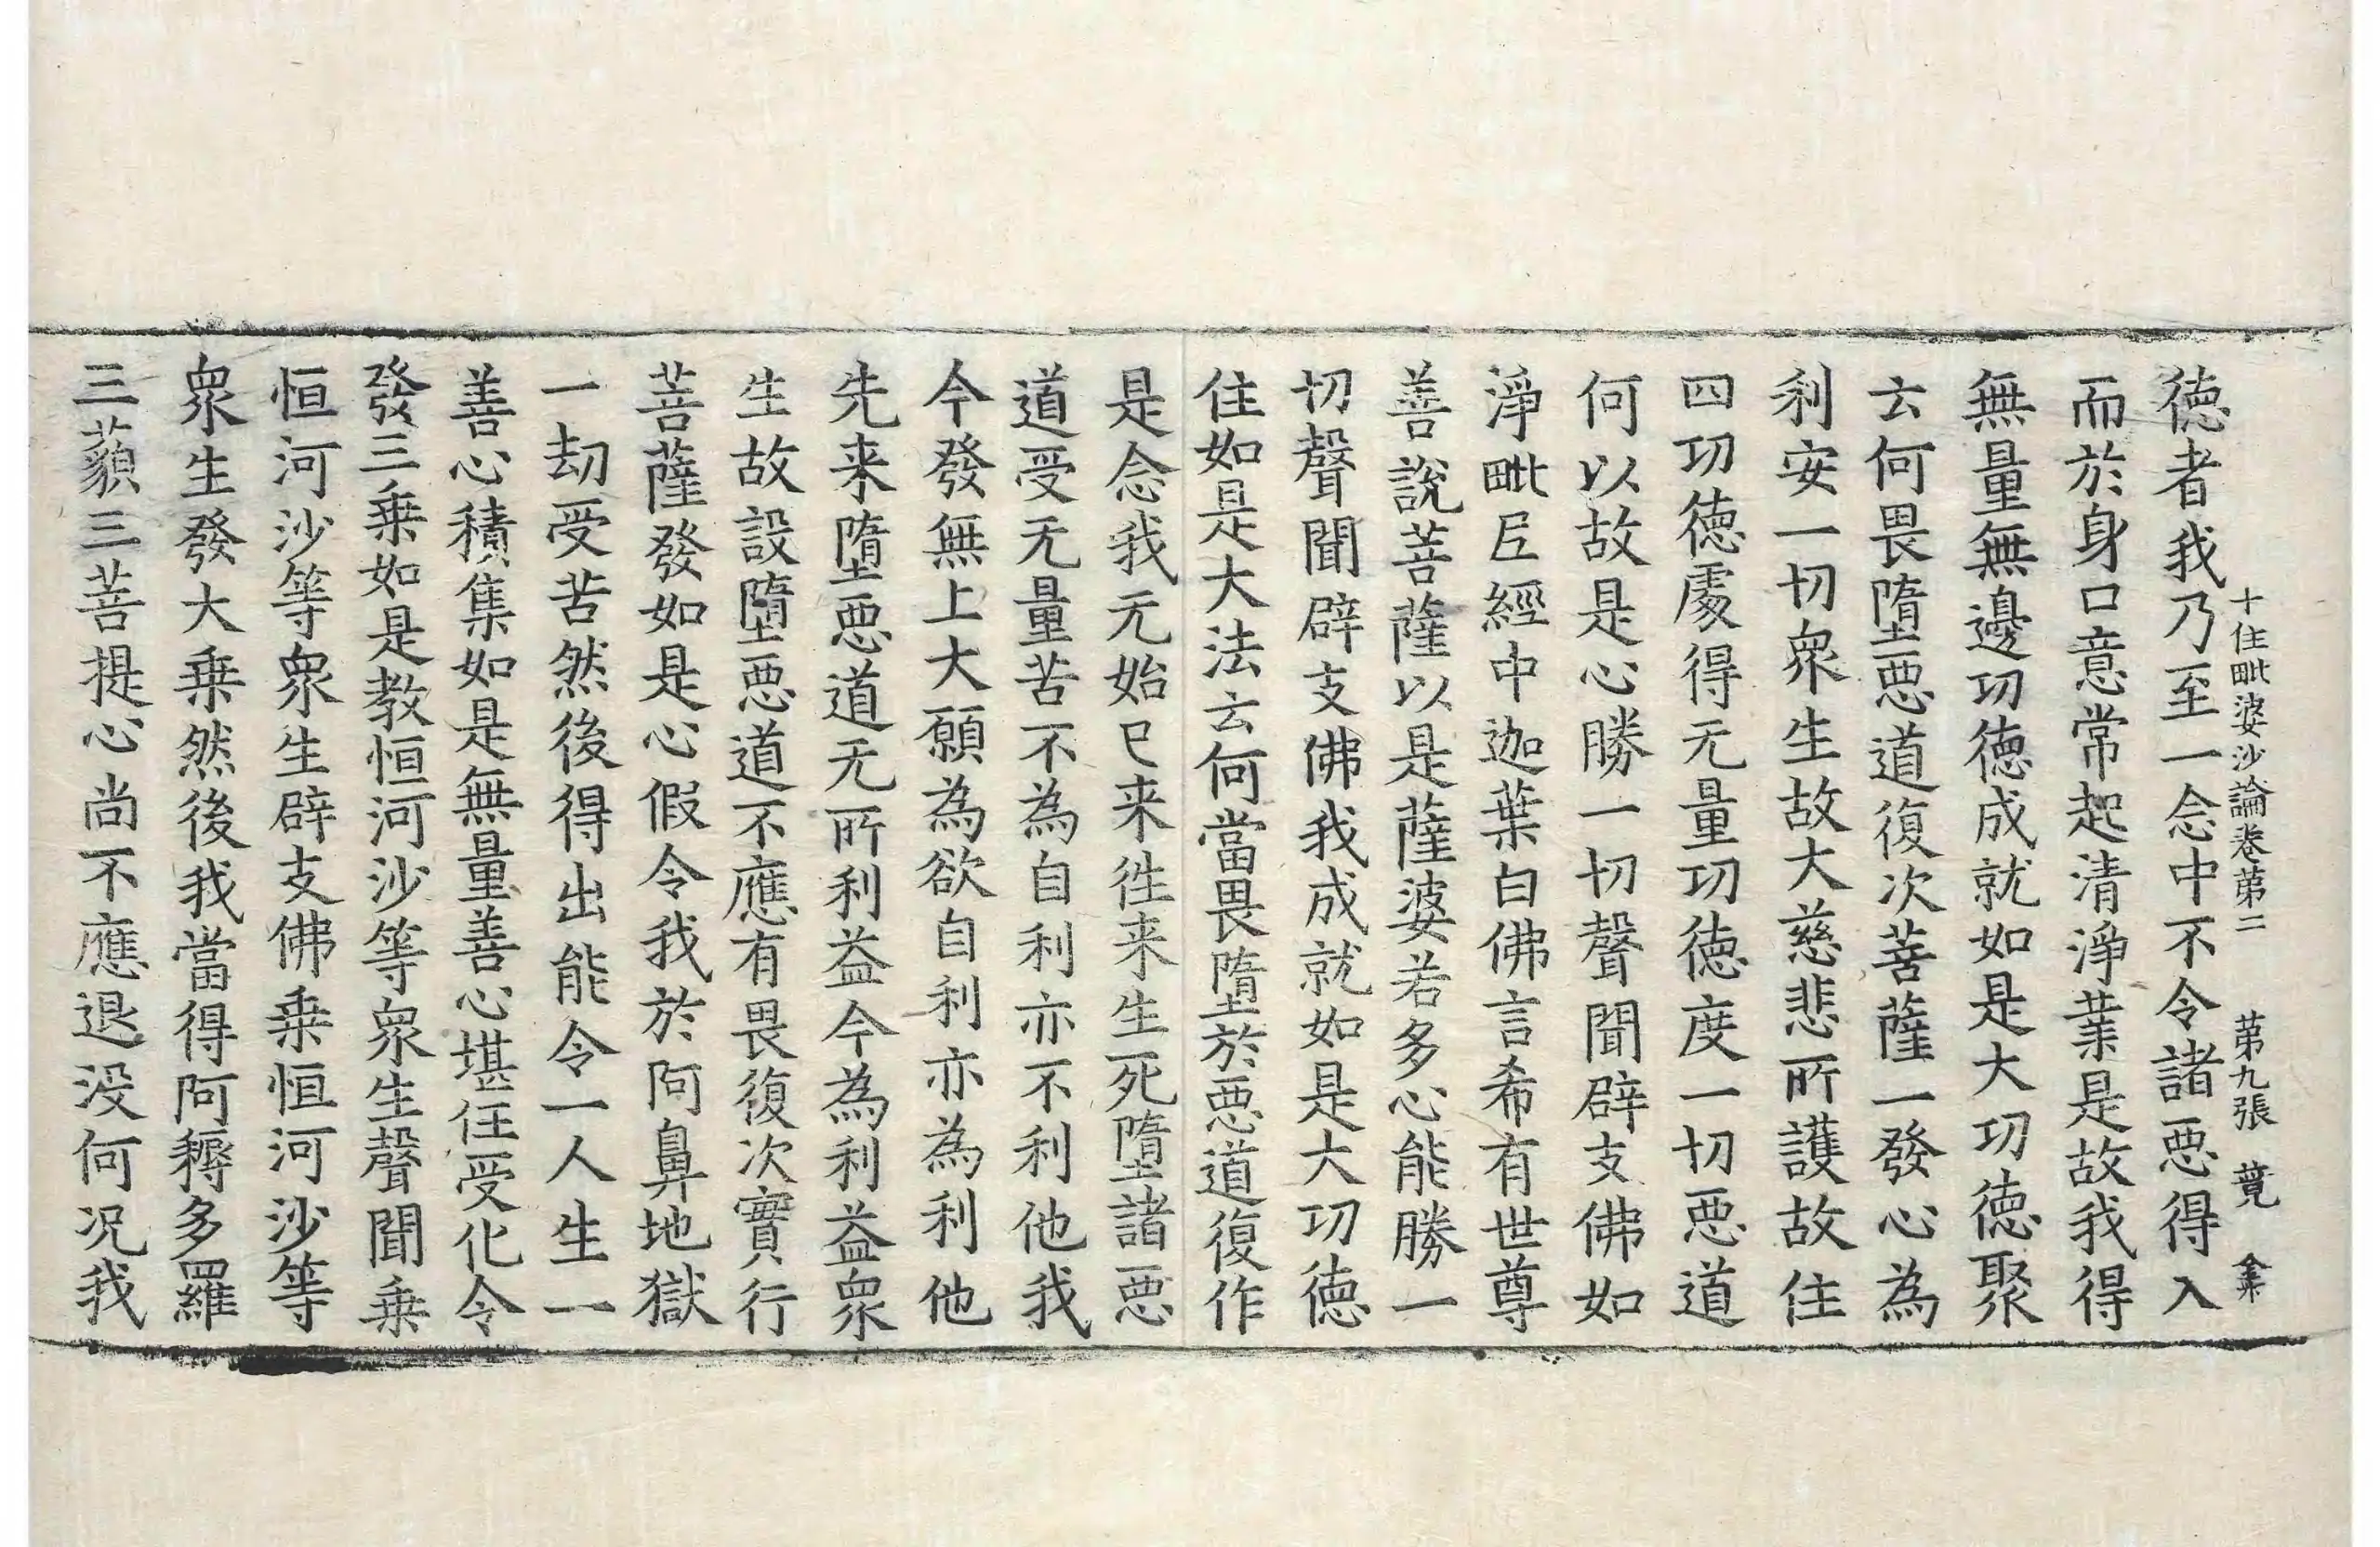 十住毗婆沙論卷苐二 苐九張 竟
徳者我乃至一念中不令諸𢙣得入
而於身口意常起清淨業是故我得
無量無邊功徳成就如是大功徳聚
云何畏墮𢙣道復次菩薩一發心為
利安一切衆生故大慈悲所護故住
四功徳處得无量功徳度一切𢙣道
何以故是心勝一切聲聞辟支佛如
淨毗尼經中迦葉白佛言希有世尊
善說菩薩以是薩婆若多心能勝一
切聲聞辟支佛我成就如是大功徳
住如是大法云何當畏墮於𢙣道復作
是念我无始已来徃来生死墮諸𢙣
道受无量苦不為自利亦不利他我
今發無上大願為欲自利亦為利他
先来墮𢙣道无所利益今為利益衆
生故設墮𢙣道不應有畏復次實行
菩薩發如是心假令我於阿鼻地獄
一劫受苦然後得出能令一人生一
善心積集如是無量善心堪任受化令
發三乗如是教恒河沙等衆生聲聞乗
恒河沙等衆生辟支佛乗恒河沙等
衆生發大乗然後我當得阿耨多羅
三藐三菩提心尚不應退没何况我